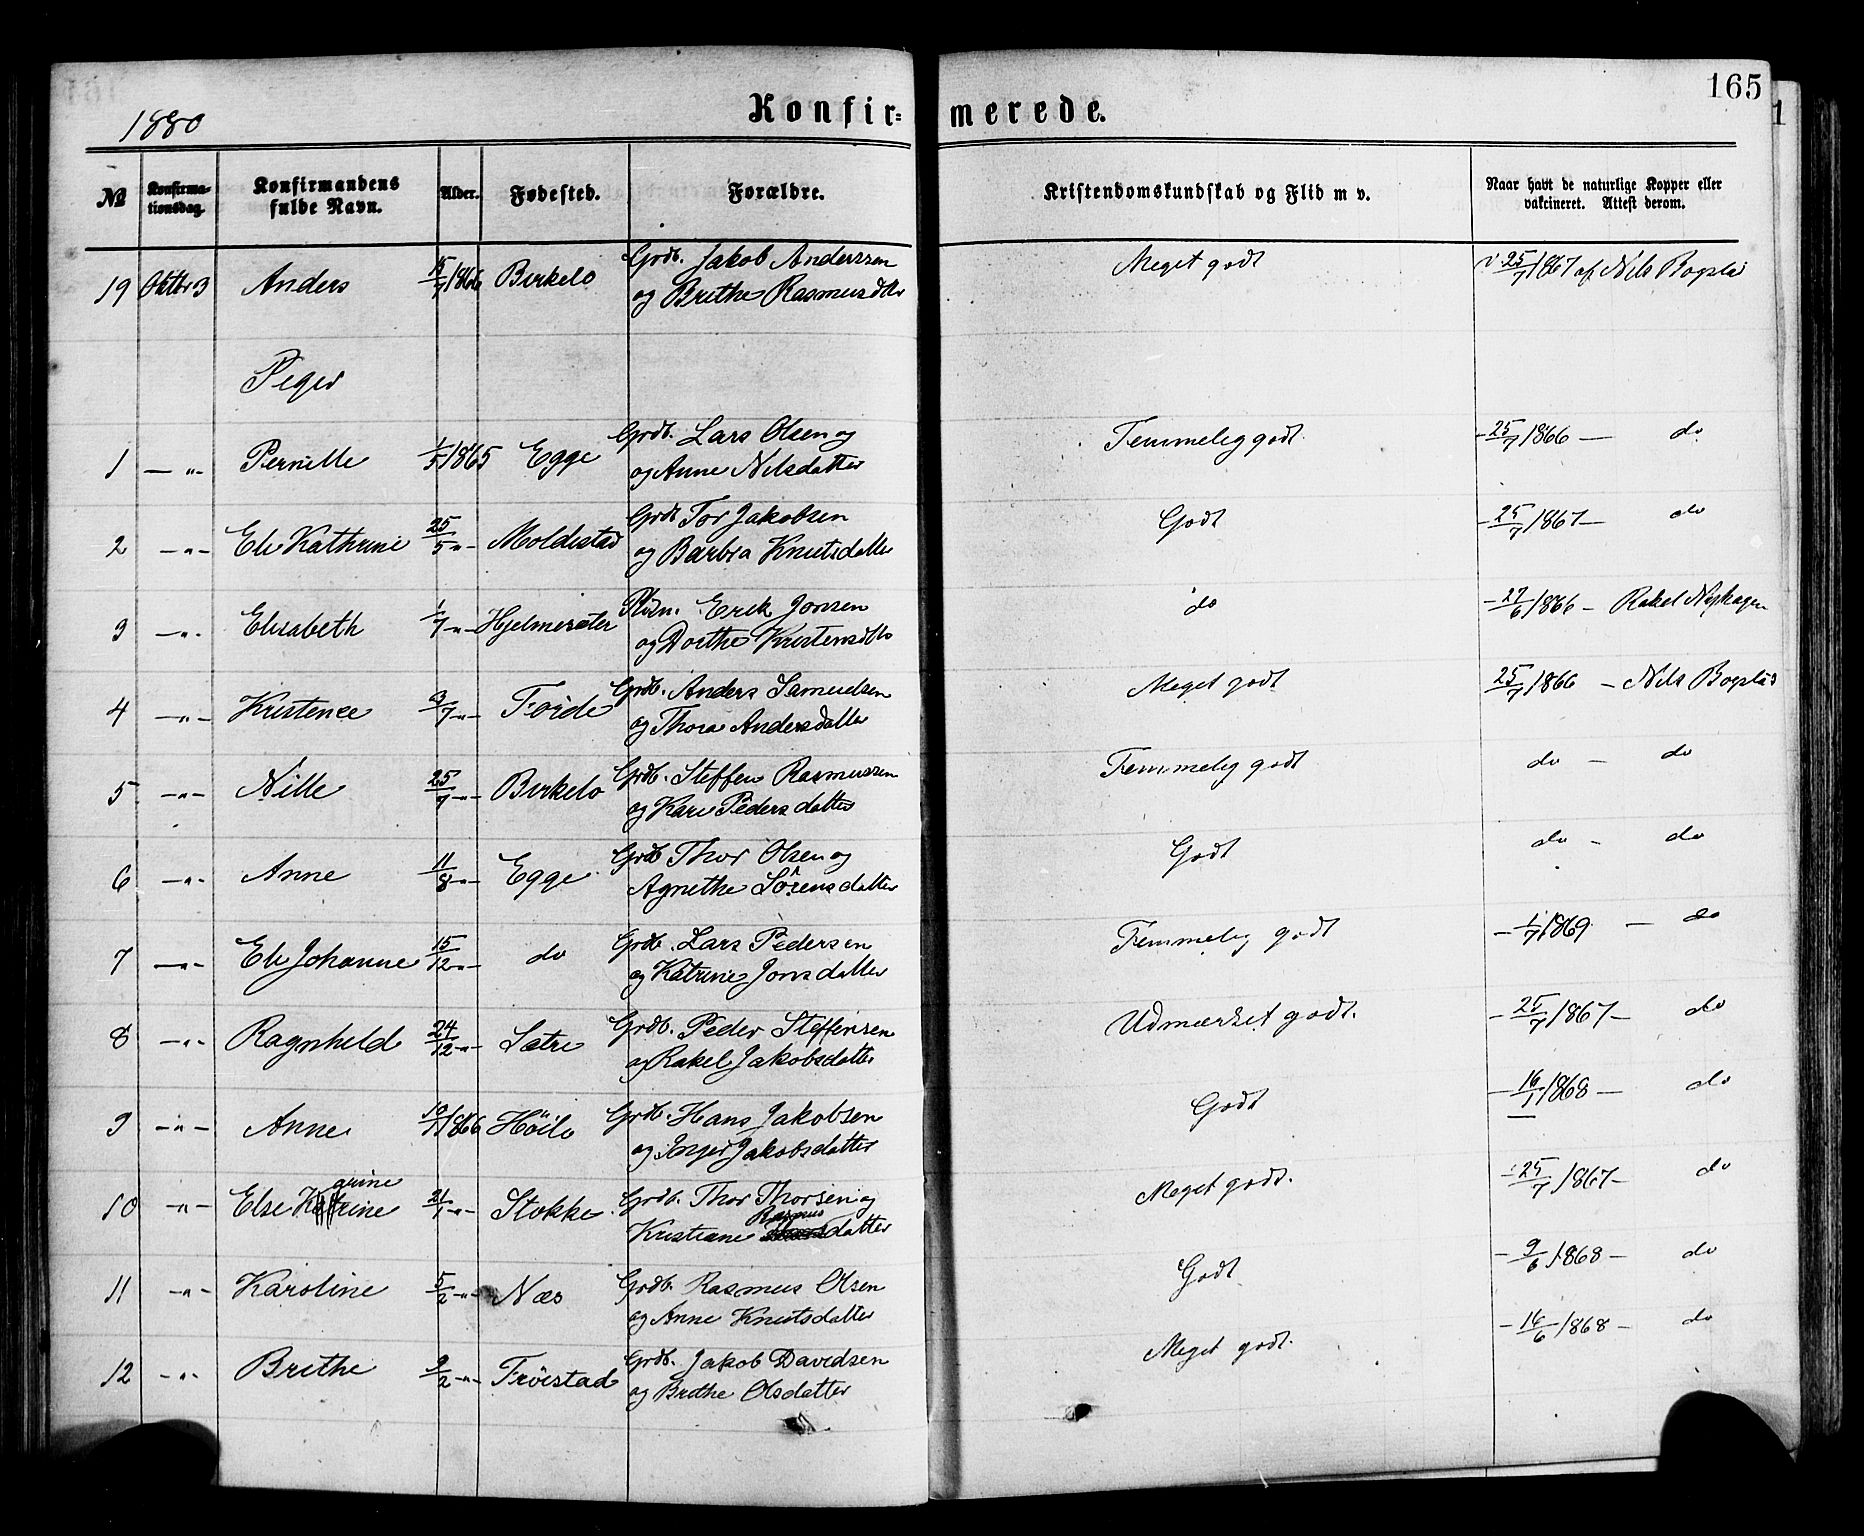 165
1880
Konfir= merede.
№ Konfirma-tionsdag. Konfirmandens fulde Navn. Alder. Fødested. Forældre. Kristendomskundskab og Flid m v. Naar havt de naturlige Kopper eller vakcineret. Attest derom.
19 Oktbr 3 Anders 15/7 1866 Birkelo Grdb. Jakob Anderssen Meget godt v. 25/7 1867 af Nils Bogslø
og Brithe Rasmusdtr
Piger
1 — „ - Pernille 1/5 1865 Egge Grdb. Lars Olsen og Temmelig godt. - 25/7 1866 — do
og Anne Nilsdatter
2 - „ - Eli Kathrine 25/5 „ - Moldestad Grdb Tor Jakobsen Godt - 25/7 1867 - do
og Barbra Knutsdatter
3 - „ - Elisabeth 1/7 „ - Hjelmesæter Pldsn. Erik Jonsen do - 27/6 1866 - Rakel
og Dorthe Kristensdtr
4 - „ - Kristence 3/7 „ - Förde Grdb. Anders Samuelsen Meget godt 25/7 1866 - Nils Bogslø
og Thora Andersdatter
5 - „ - Nille 25/7 „ - Birkelo Grdb. Steffen Rasmussen Temmelig godt do - do
og Kari Pedersdatter
6 - „ - Anne 11/8 „ - Egge Grdb Thor Olsen og Godt do - do
Agnethe Sörensdatter
7 - „ - Eli Johanne 15/12 „ - do Grdb. Lars Pedersen Temmelig godt - 1/7 1869 - do
og Katrine Jonsdatter
8 - „ - Ragnhild 24/12 „ - Sætre Grdb. Peder Steffensen Udmærket godt. - 25/7 1867 - do
og Rakel Jakobsdatter
9 - „ - Anne 10/1 1866 Höilo Grdb. Hans Jakobsen Godt - 16/7 1868 - do
og Inger Jakobsdatter
grine
10 - „ - Else Katrine 21/1 „ - Stokke Grdb. Thor Thorsen og Meget godt. - 25/7 1867 - do
Rasmus
Kristiane datter
11 - „ - Karoline 5/2 „ - Næs Grdb. Rasmus Olsen Godt - 9/6 1868 - do
og Anne Knutsdatter
12 - „ - Brithe 9/2 „ - Tröistad Grdb. Jakob Davidsen Meget godt. - 16/6 1868 - do
og Brithe Olsdatter